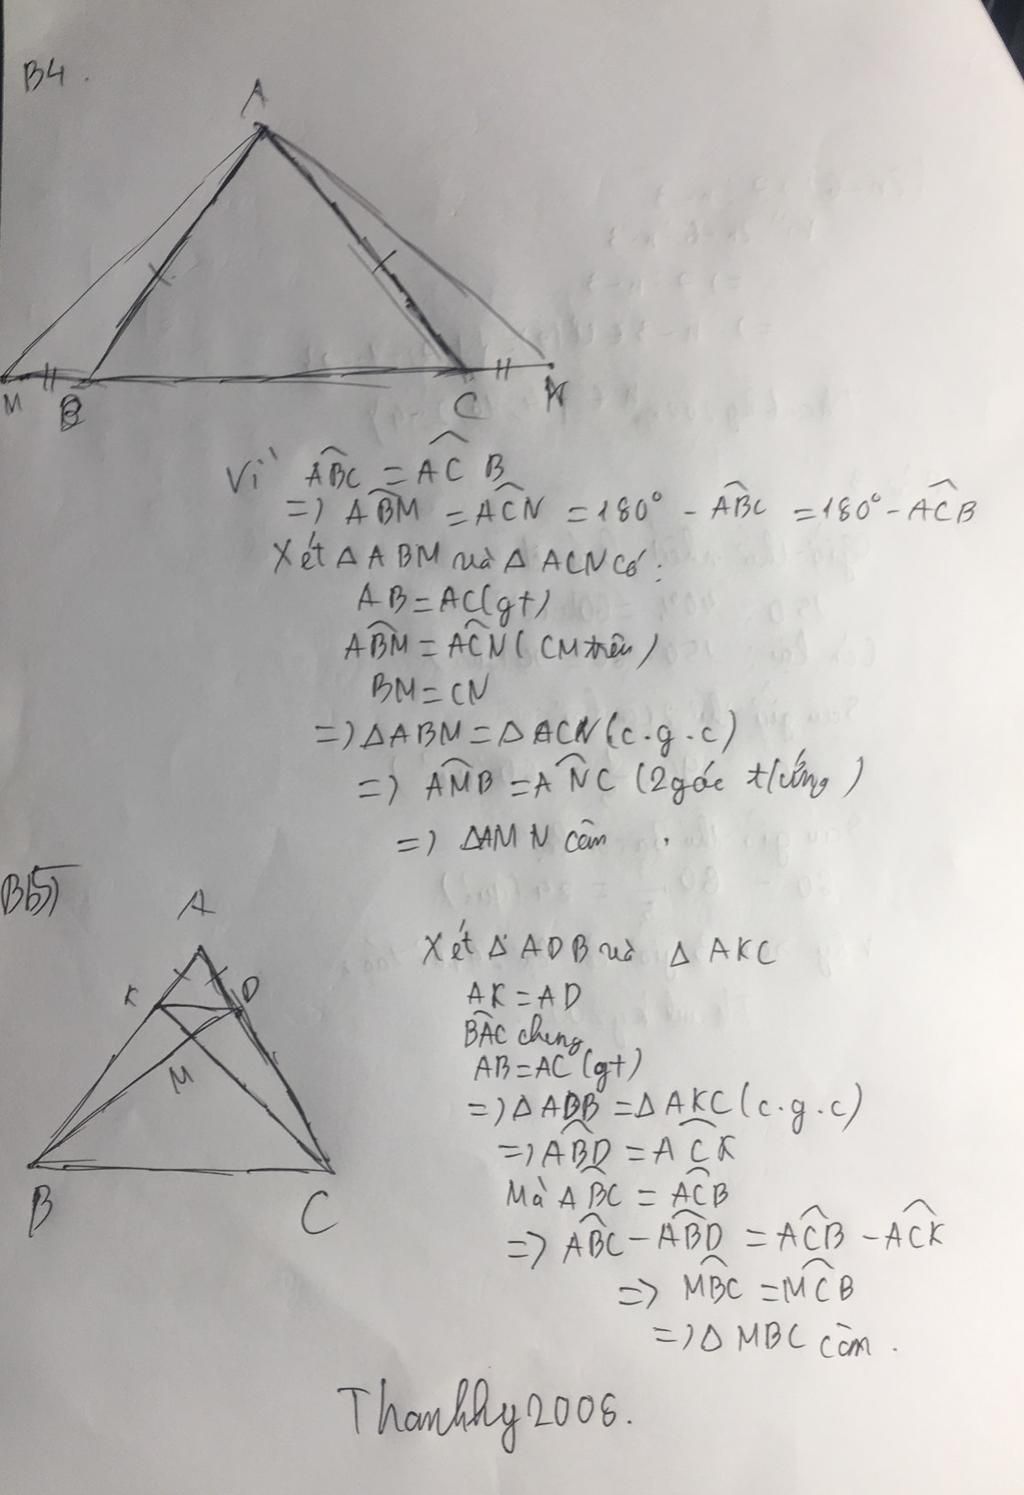 B4.
A
M B C N
Vì ABC = ACB
=> ABM = ACN = 180° - ABC = 180° - ACB
Xét Δ ABM và Δ ACN có:
AB = AC (gt)
ABM = ACN (CM trên)
BM = CN
=> Δ ABM = Δ ACN (c.g.c)
=> AMB = ANC (2 góc t/ứng)
=> ΔAMN cân.
B5)
A
K D
M
B C
Xét Δ ADB và Δ AKC
AK = AD
BAC chung
AB = AC (gt)
=> Δ ADB = Δ AKC (c.g.c)
=> ABD = ACK
Mà ABC = ACB
=> ABC - ABD = ACB - ACK
=> MBC = MCB
=> Δ MBC cân.
Thanhhy2006.